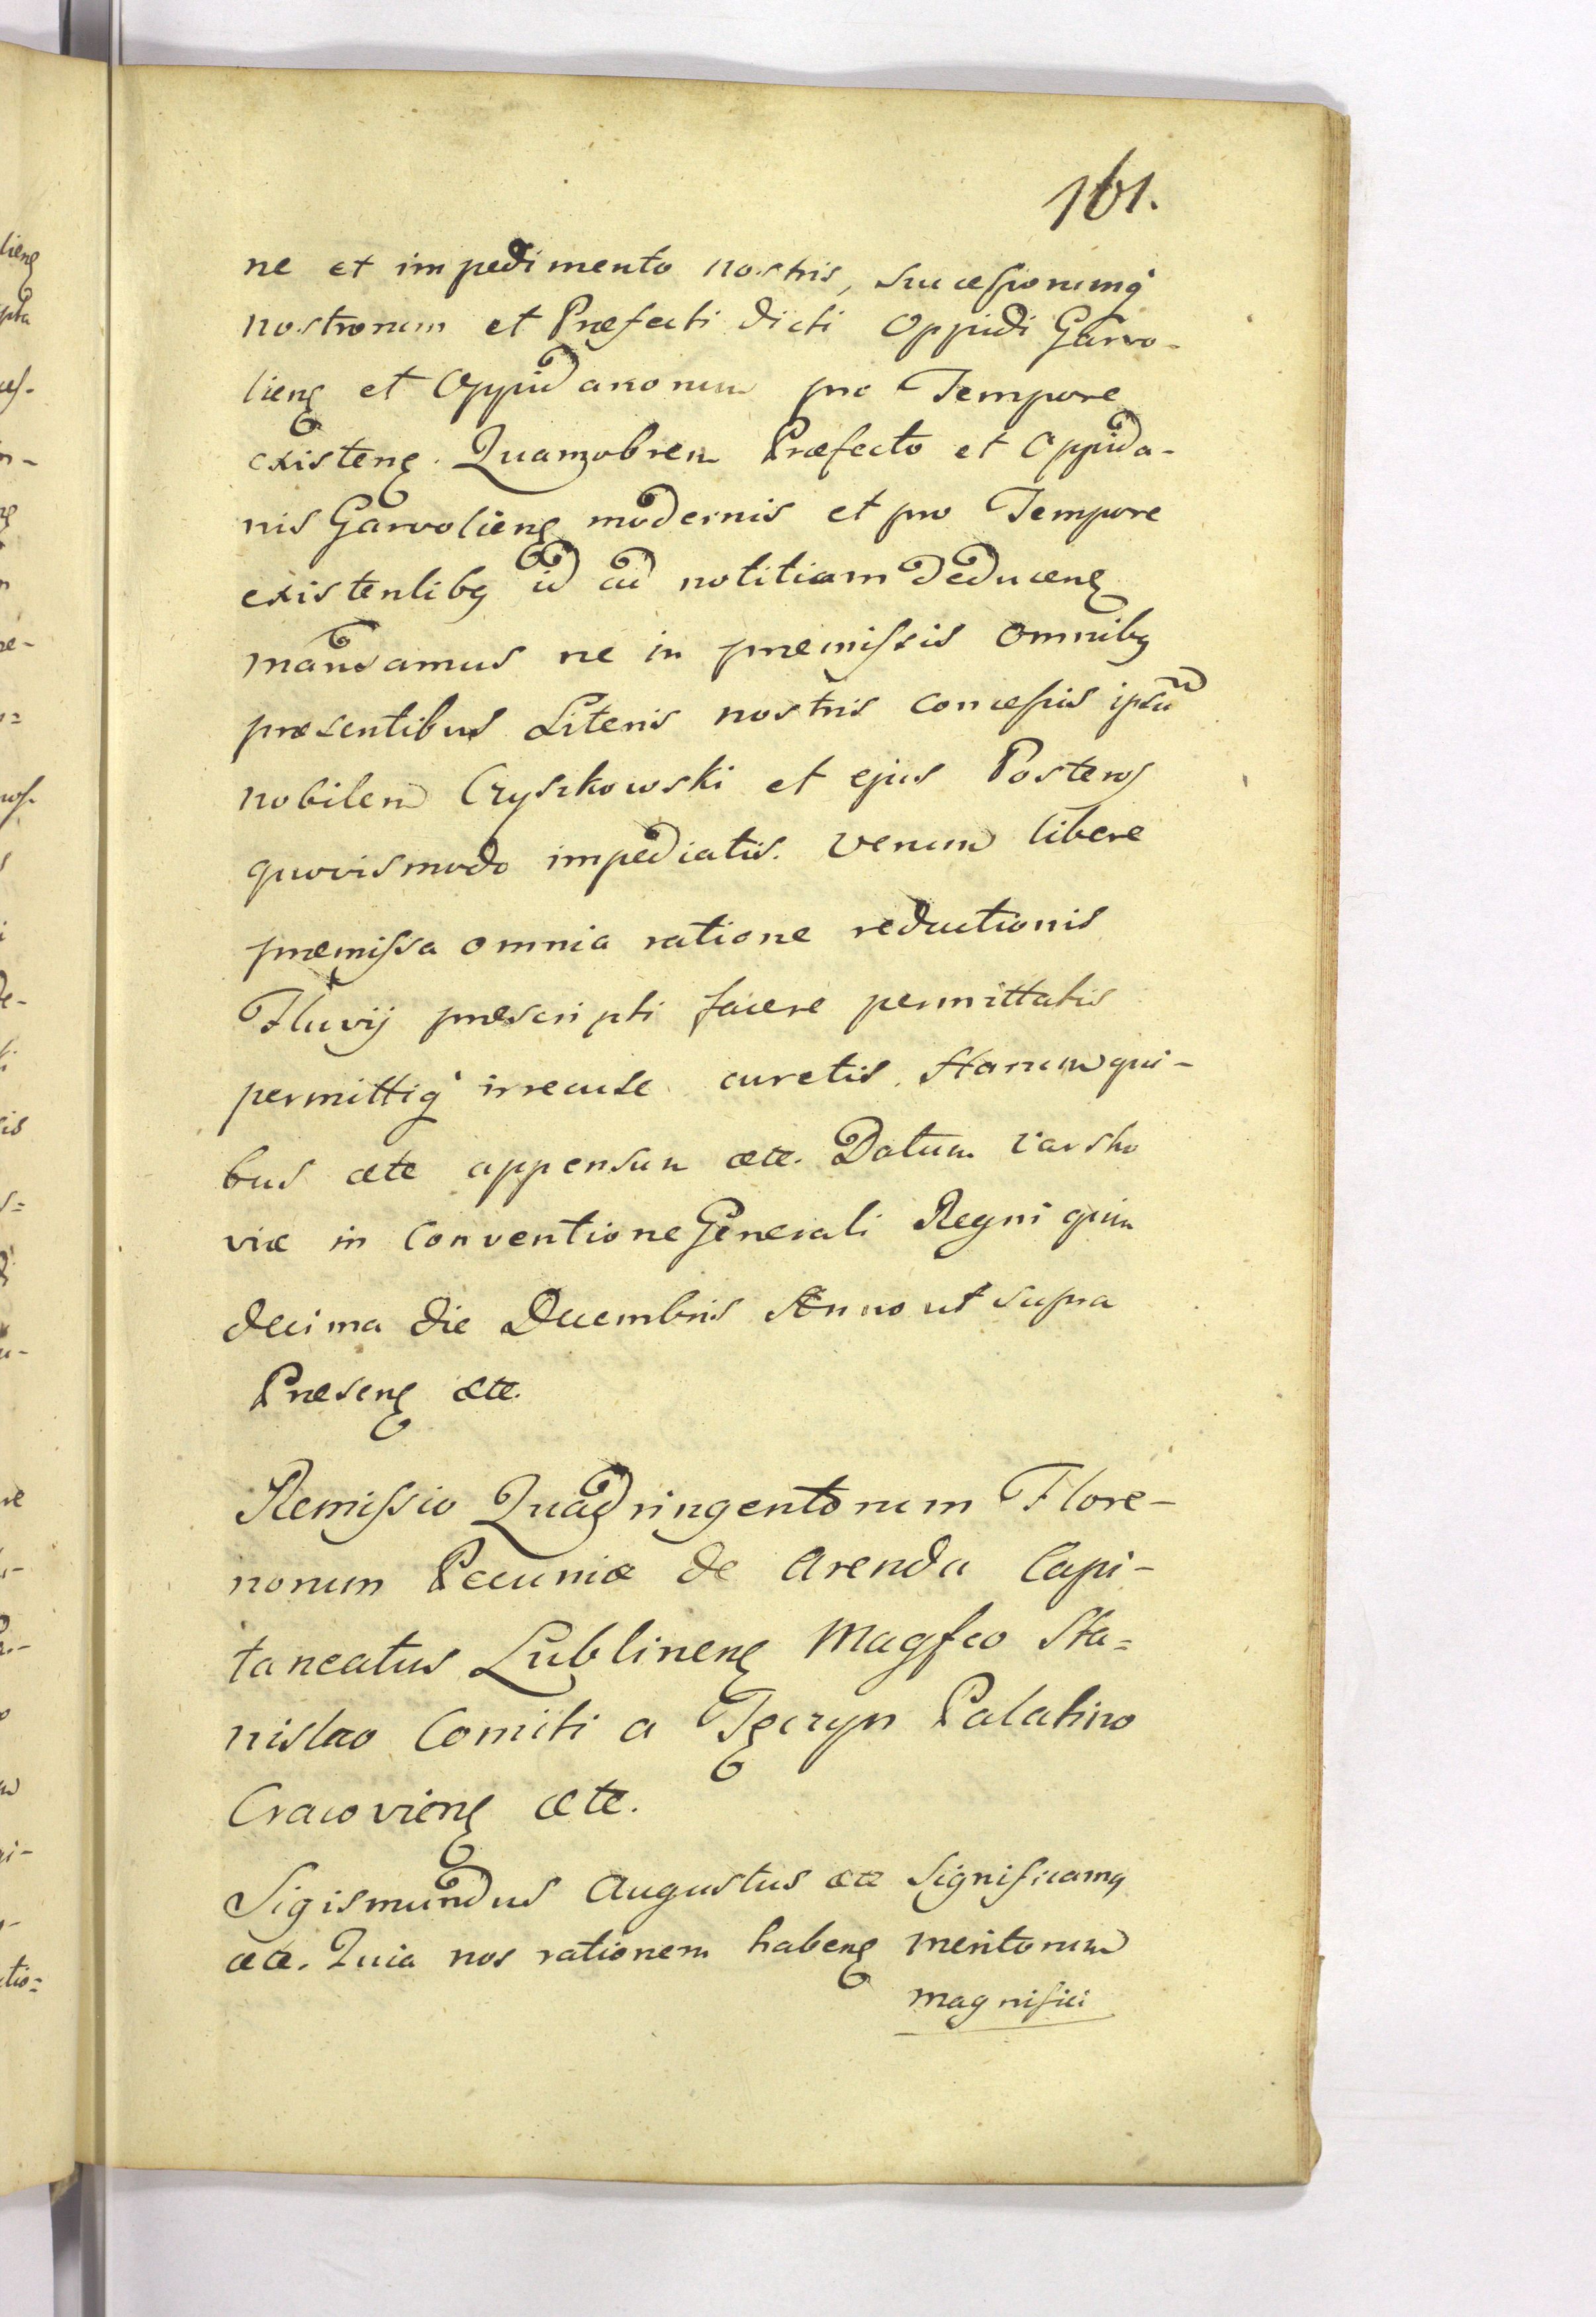 161.
ne et impedimento nostris, Succeſsorumq̃
nostrorum et Præfecti dicti Oppidi Garvo-
lieng et Oppidanorum pro Tempore
existeng. Quamobrem Præfecto et Oppida-
nis Garvolieng modernis et pro Tempore
existentibg id ad notitiam deduceng
mandamus ne in præmiſsis omnibg
præsentibus Literis nostris conceſsis ipsū
nobilem Czyszkowski et ejus Posteros
quovismodo impediatis. Verum libere
præmiſsa omnia ratione reductionis
Fluvij præscripti facere permittatis
permittiq̃ irrecuse curetis. Harum qui-
bus ætc appensum ætc. Datum Varsho
viæ in Conventione Generali Regni quin
decima die Decembris Anno ut supra
Præseng ætc.
Remiſsio Quadringentorum Flore-
norum Pecuniæ de Arenda Capi-
taneatus Lublineng Magfco Sta=
nislao Comiti a Tęczyn Palatino
Cracovieng ætc.
Sigismundus Augustus ætc Significamg
ætc. Quia nos rationem habeng meritorum
magnifici